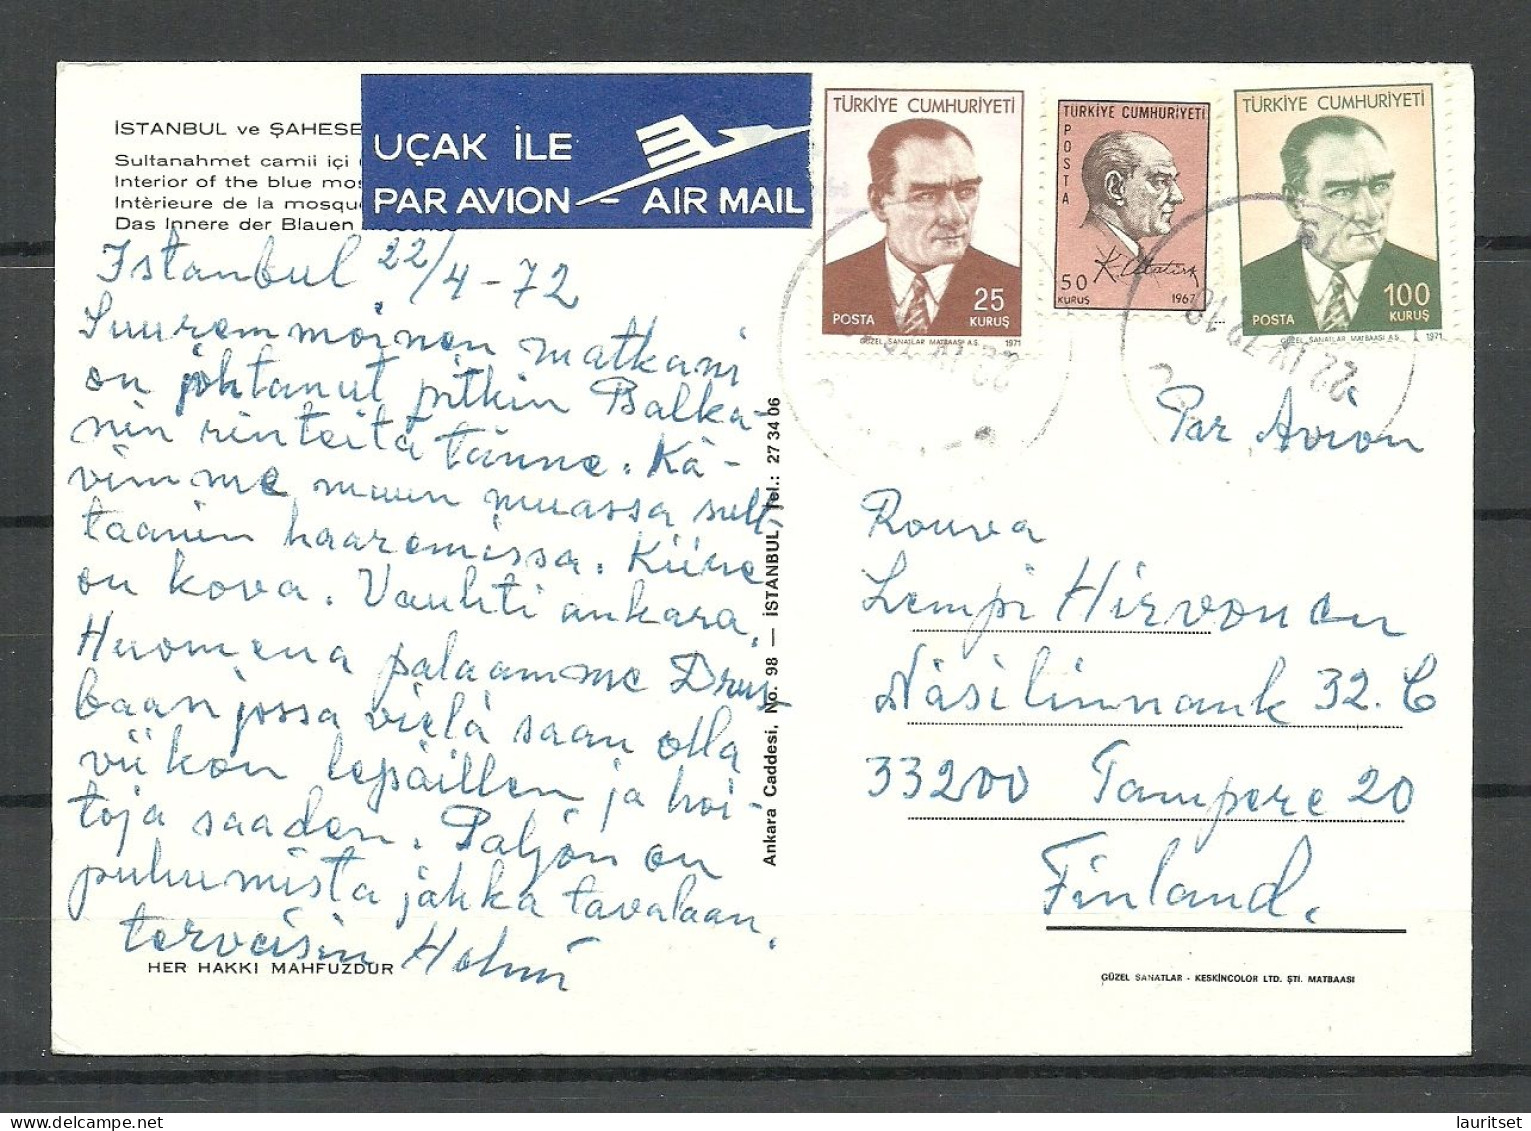 İSTANBUL ve ŞAHESE
Sultanahmet camii içi
Interior of the blue mos
Intèrieure de la mosqu
Das Innere der Blauen
UÇAK İLE
PAR AVION
AIR MAIL
TÜRKİYE CUMHURİYETİ
25
POSTA KURUŞ
GÜZEL SANATLAR MATBAASI A.Ş. 1971
TÜRKİYE CUMHURİYETİ
POSTA
K. Atatürk
50
KURUŞ 1967
TÜRKİYE CUMHURİYETİ
100
POSTA KURUŞ
GÜZEL SANATLAR MATBAASI A.Ş. 1971
22 IV 72 10
Istanbul 22/4-72
Suuremmoinen matkani
on johtanut pitkin Balka-
nin rinteitä tänne. Kä-
vimme muun muassa sult.
taanin haaremissa. Kiire
on kova. Vauhti ankara.
Huomenna palaamme Drus
baan jossa vielä saan olla
viikon lepäillen ja hoi-
toja saaden. Paljon on
puhumista jahka tavalaan.
terveisin Helmi
HER HAKKI MAHFUZDUR
Ankara Caddesi, No. 98 — İSTANBUL, Tel.: 27 34 06
Par Avion
Rouva
Lempi Hirvonen
Näsilinnank 32. C
33200 Tampere 20
Finland.
GÜZEL SANATLAR - KESKİNCOLOR LTD. ŞTİ. MATBAASI
lauritset